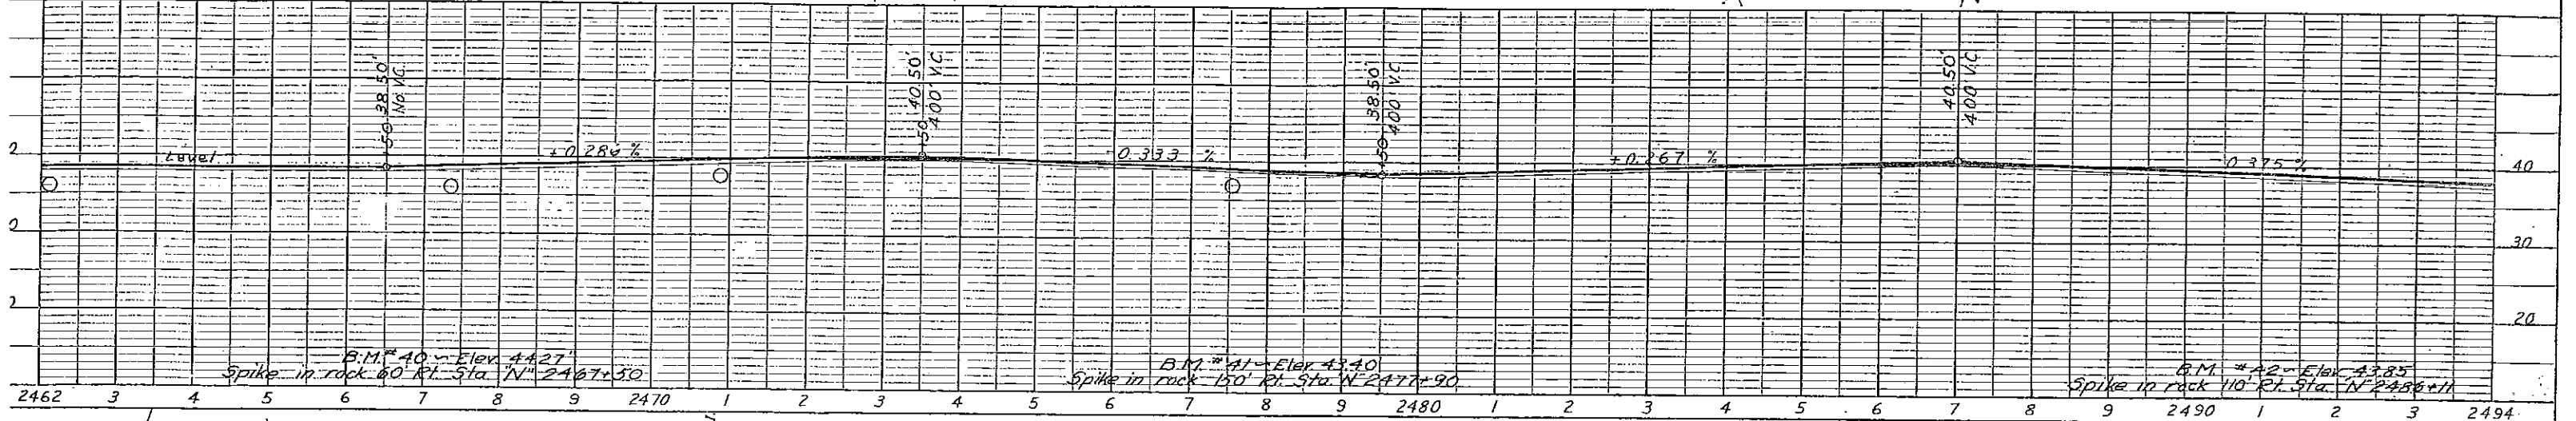 +50 38.50'
No V.C.
+50 40.50'
400' V.C.
+50 38.50'
400' V.C.
40.50'
400' V.C.
Level
+0.286 %
-0.333 %
+0.267 %
-0.375 %
40
30
20
B.M. #40 ~ Elev. 44.27'
Spike in rock 60' Rt. Sta. "N" 2467+50
B.M. #41 ~ Elev. 43.40
Spike in rock 150' Rt. Sta. "N" 2477+90
B.M. #42 ~ Elev. 43.85
Spike in rock 110' Rt. Sta. "N" 2486+11
2462 3 4 5 6 7 8 9 2470 1 2 3 4 5 6 7 8 9 2480 1 2 3 4 5 6 7 8 9 2490 1 2 3 2494